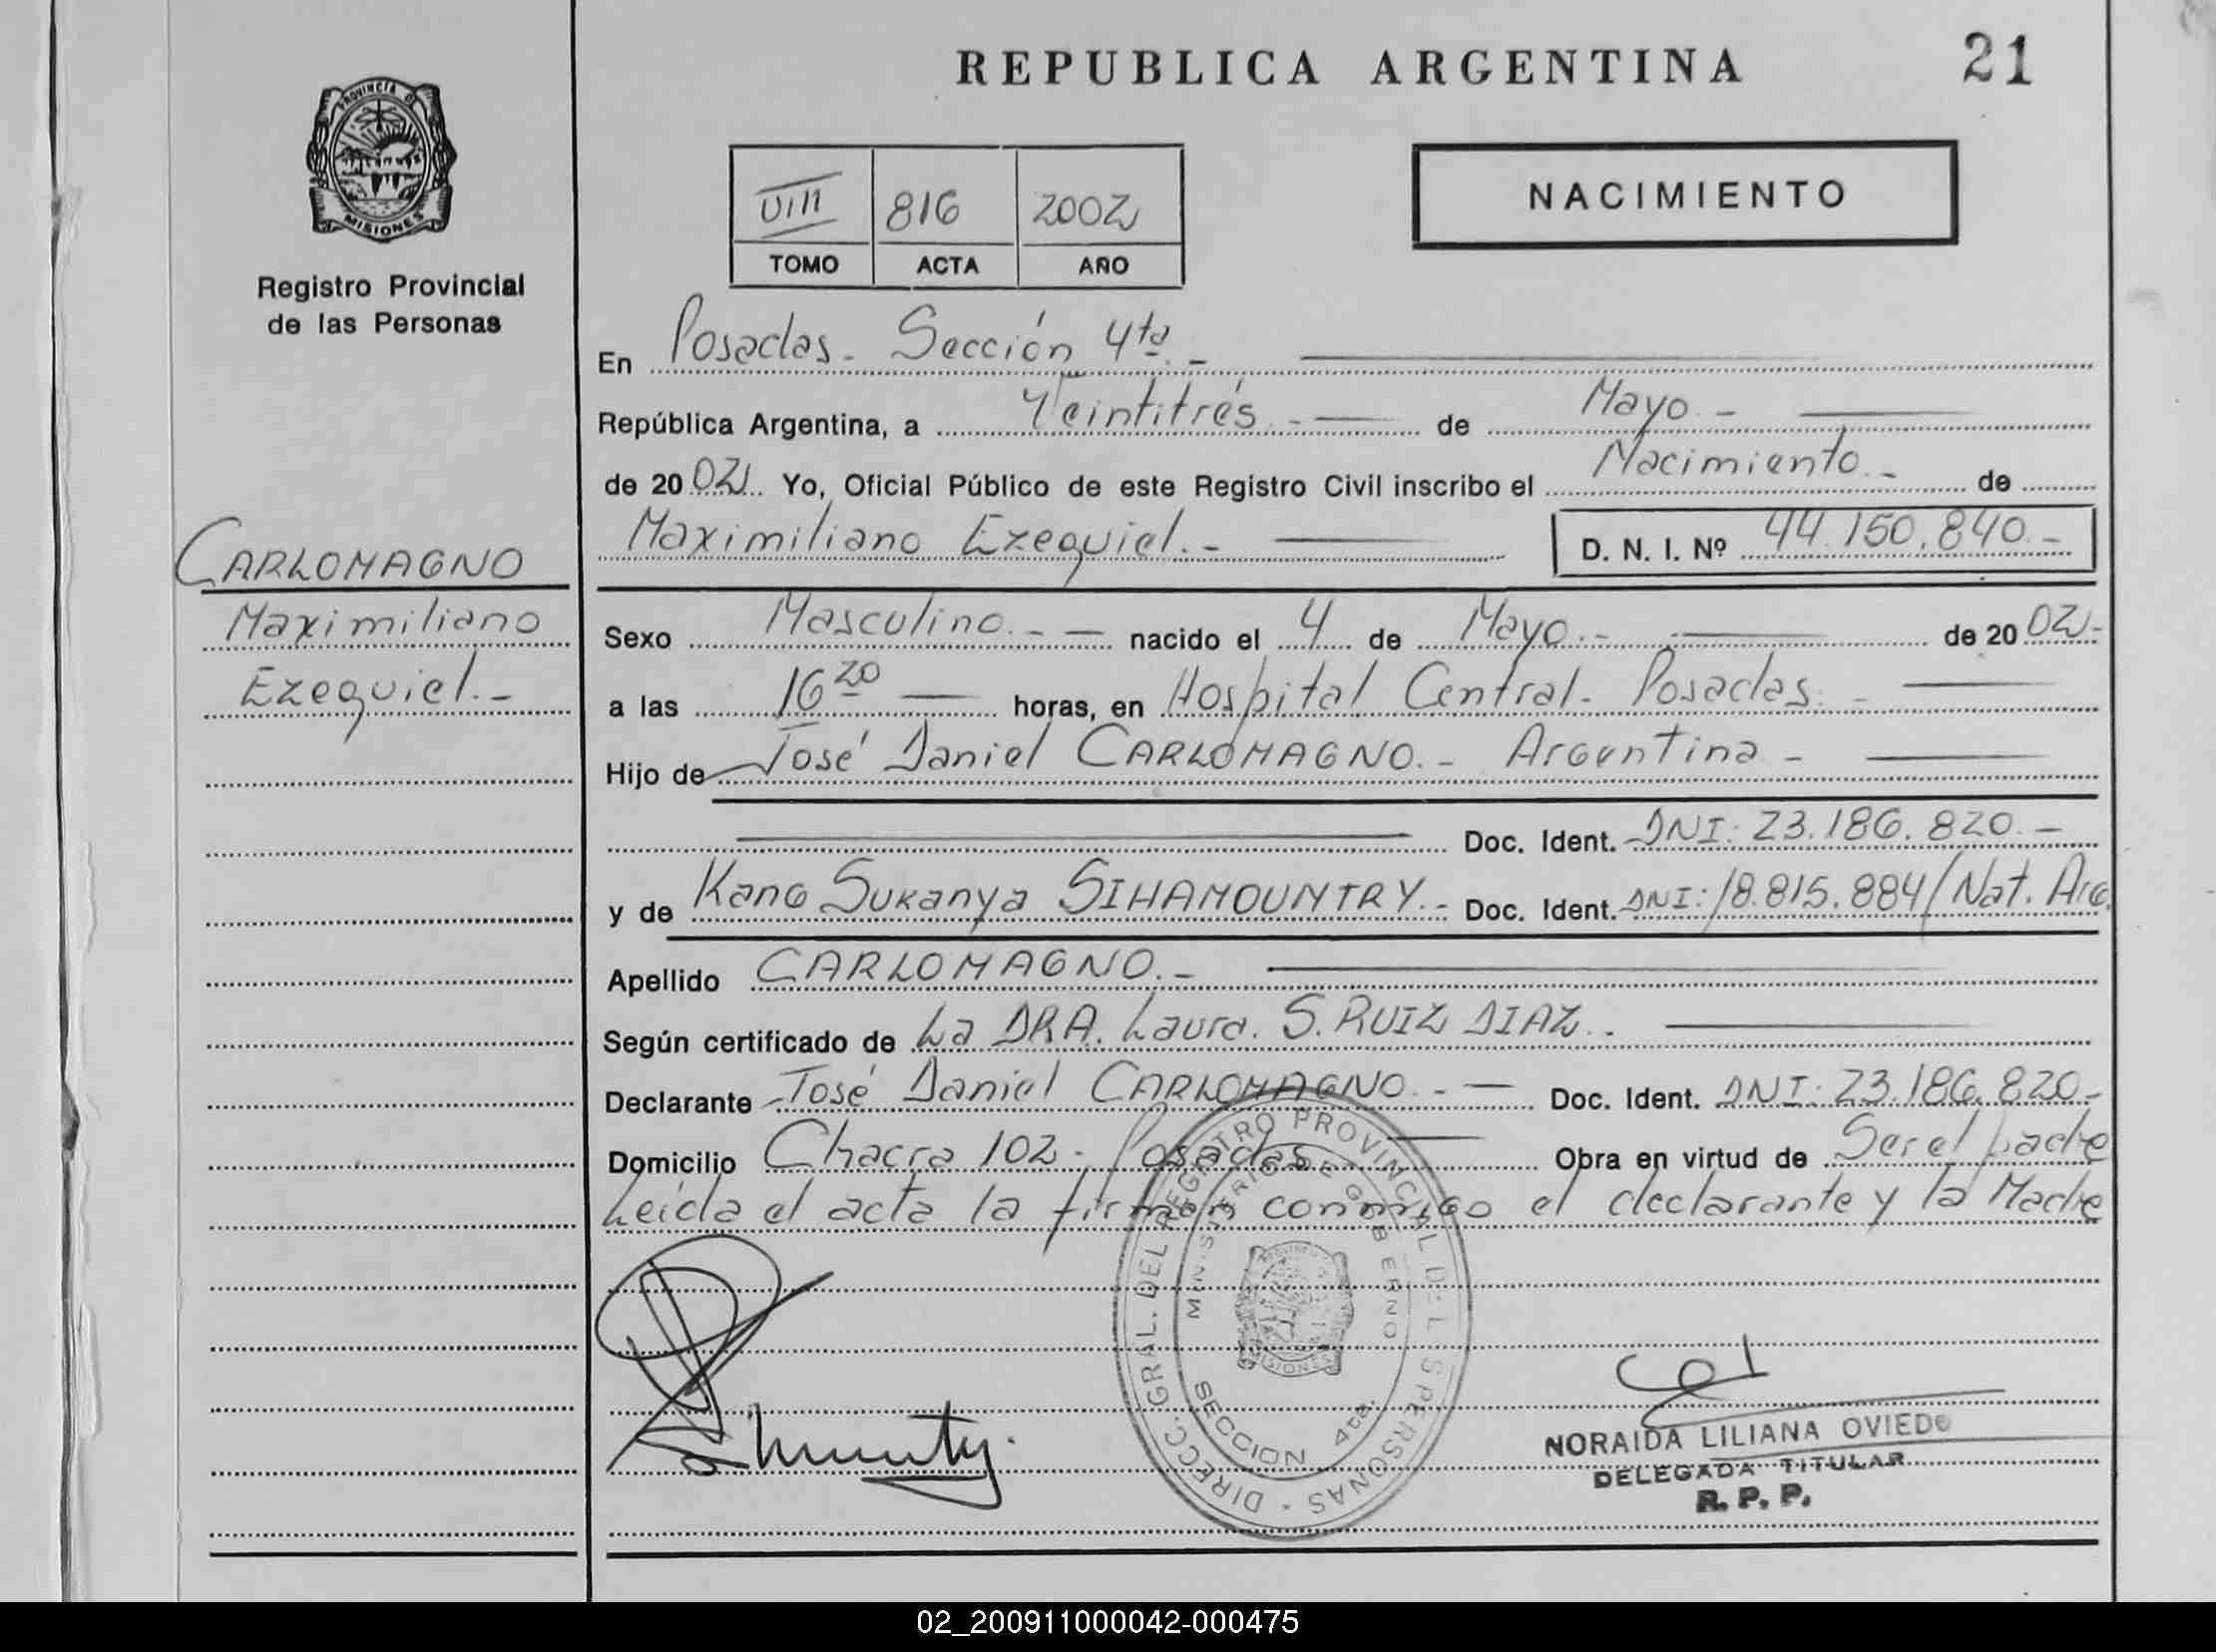 REPUBLICA ARGENTINA
21
PROVINCIA DE
MISIONES
Registro Provincial
de las Personas
VIII 816 2002
TOMO ACTA AÑO
NACIMIENTO
En Posadas - Sección 4ta. -
República Argentina, a Veintitrés. - de Mayo. -
de 2002. Yo, Oficial Público de este Registro Civil inscribo el Nacimiento. - de
Maximiliano Ezequiel. - D. N. I. Nº 44.150.840. -
CARLOMAGNO
Maximiliano
Ezequiel. -
Sexo Masculino. - - nacido el 4 de Mayo. - de 2002-
a las 16 20 horas, en Hospital Central - Posadas. -
Hijo de José Daniel CARLOMAGNO. - Argentina -
Doc. Ident. DNI: 23.186.820. -
y de Kang Sukanya SIHAMOUNTRY. - Doc. Ident. DNI: 18.815.884/Nat. Arg.
Apellido CARLOMAGNO. -
Según certificado de La DRA. Laura. S. RUIZ DIAZ..
Declarante José Daniel CARLOMAGNO. - - Doc. Ident. DNI: 23.186.820-
Domicilio Chacra 102 - Posadas Obra en virtud de Ser el padre
Leida el acta la firman conmigo el declarante y la Madre
DIRECC. GRAL. DEL REGISTRO PROVINCIAL DE L S PERSONAS -
MINISTERIO DE GOBIERNO
SECCION 4ta.
MISIONES
NORAIDA LILIANA OVIEDO
DELEGADA TITULAR
R. P. P.
02_200911000042-000475